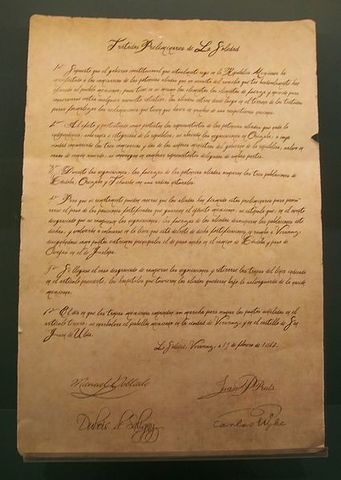 Tratados Preliminares de La Soledad
1º Supuesto que el gobierno constitucional que actualmente rige en la República Mexicana ha
manifestado a los comisarios de las potencias aliadas que no necesita del auxilio que tan benévolamente han
ofrecido al pueblo mexicano, pues tiene en sí mismo los elementos de fuerza y
contra cualquier revuelta intestina, los aliados entran desde luego en el terreno de los tratados
para formalizar las reclamaciones que tienen que hacer en nombre de sus respectivas naciones.
2º Al efecto y protestando como protestan los representantes de las potencias aliadas que nada
independencia, soberanía e integridad de la república, se abrirán las negociaciones en Orizaba, a cuya
ciudad concurrirán los tres comisarios y dos de los señores ministros del gobierno de la república, salvo en
caso de que se nombren representantes delegados de ambas partes.
3º Durante las negociaciones, las fuerzas de las potencias aliadas ocuparán las tres poblaciones de
Córdoba, Orizaba y Tehuacán con sus radios naturales.
4º Para que ni remotamente pueda creerse que los aliados han firmado estos preliminares para procu-
rarse el paso de las posiciones fortificadas que guarnece el ejército mexicano, se estipula que, en el evento
desgraciado que se rompiesen las negociaciones, las fuerzas de los aliados las poblaciones
dichas, y volverán a colocarse en la línea que está delante de dichas fortificaciones, en rumbo a Veracruz,
puntos extremos principales el de paso ancho en el camino de Córdoba y paso de
Ovejas en el de Jalapa.
5º Si llegase el caso desgraciado de romperse las negociaciones y retirarse las tropas del lugar indicado
en el artículo precedente, los hospitales que tuvieren los aliados quedarán bajo la salvaguardia de la nación
mexicana.
6º El día en que las tropas emprendan su marcha para ocupar los puntos señalados en el
artículo tercero, se enarbolará el pabellón mexicano en la ciudad de Veracruz y en el castillo de San
Juan de Ulúa.
La Soledad, Veracruz, a 19 de febrero de 1862.
Manuel Doblado Juan P Prats
Dubois de Saligny Carlos Wyke